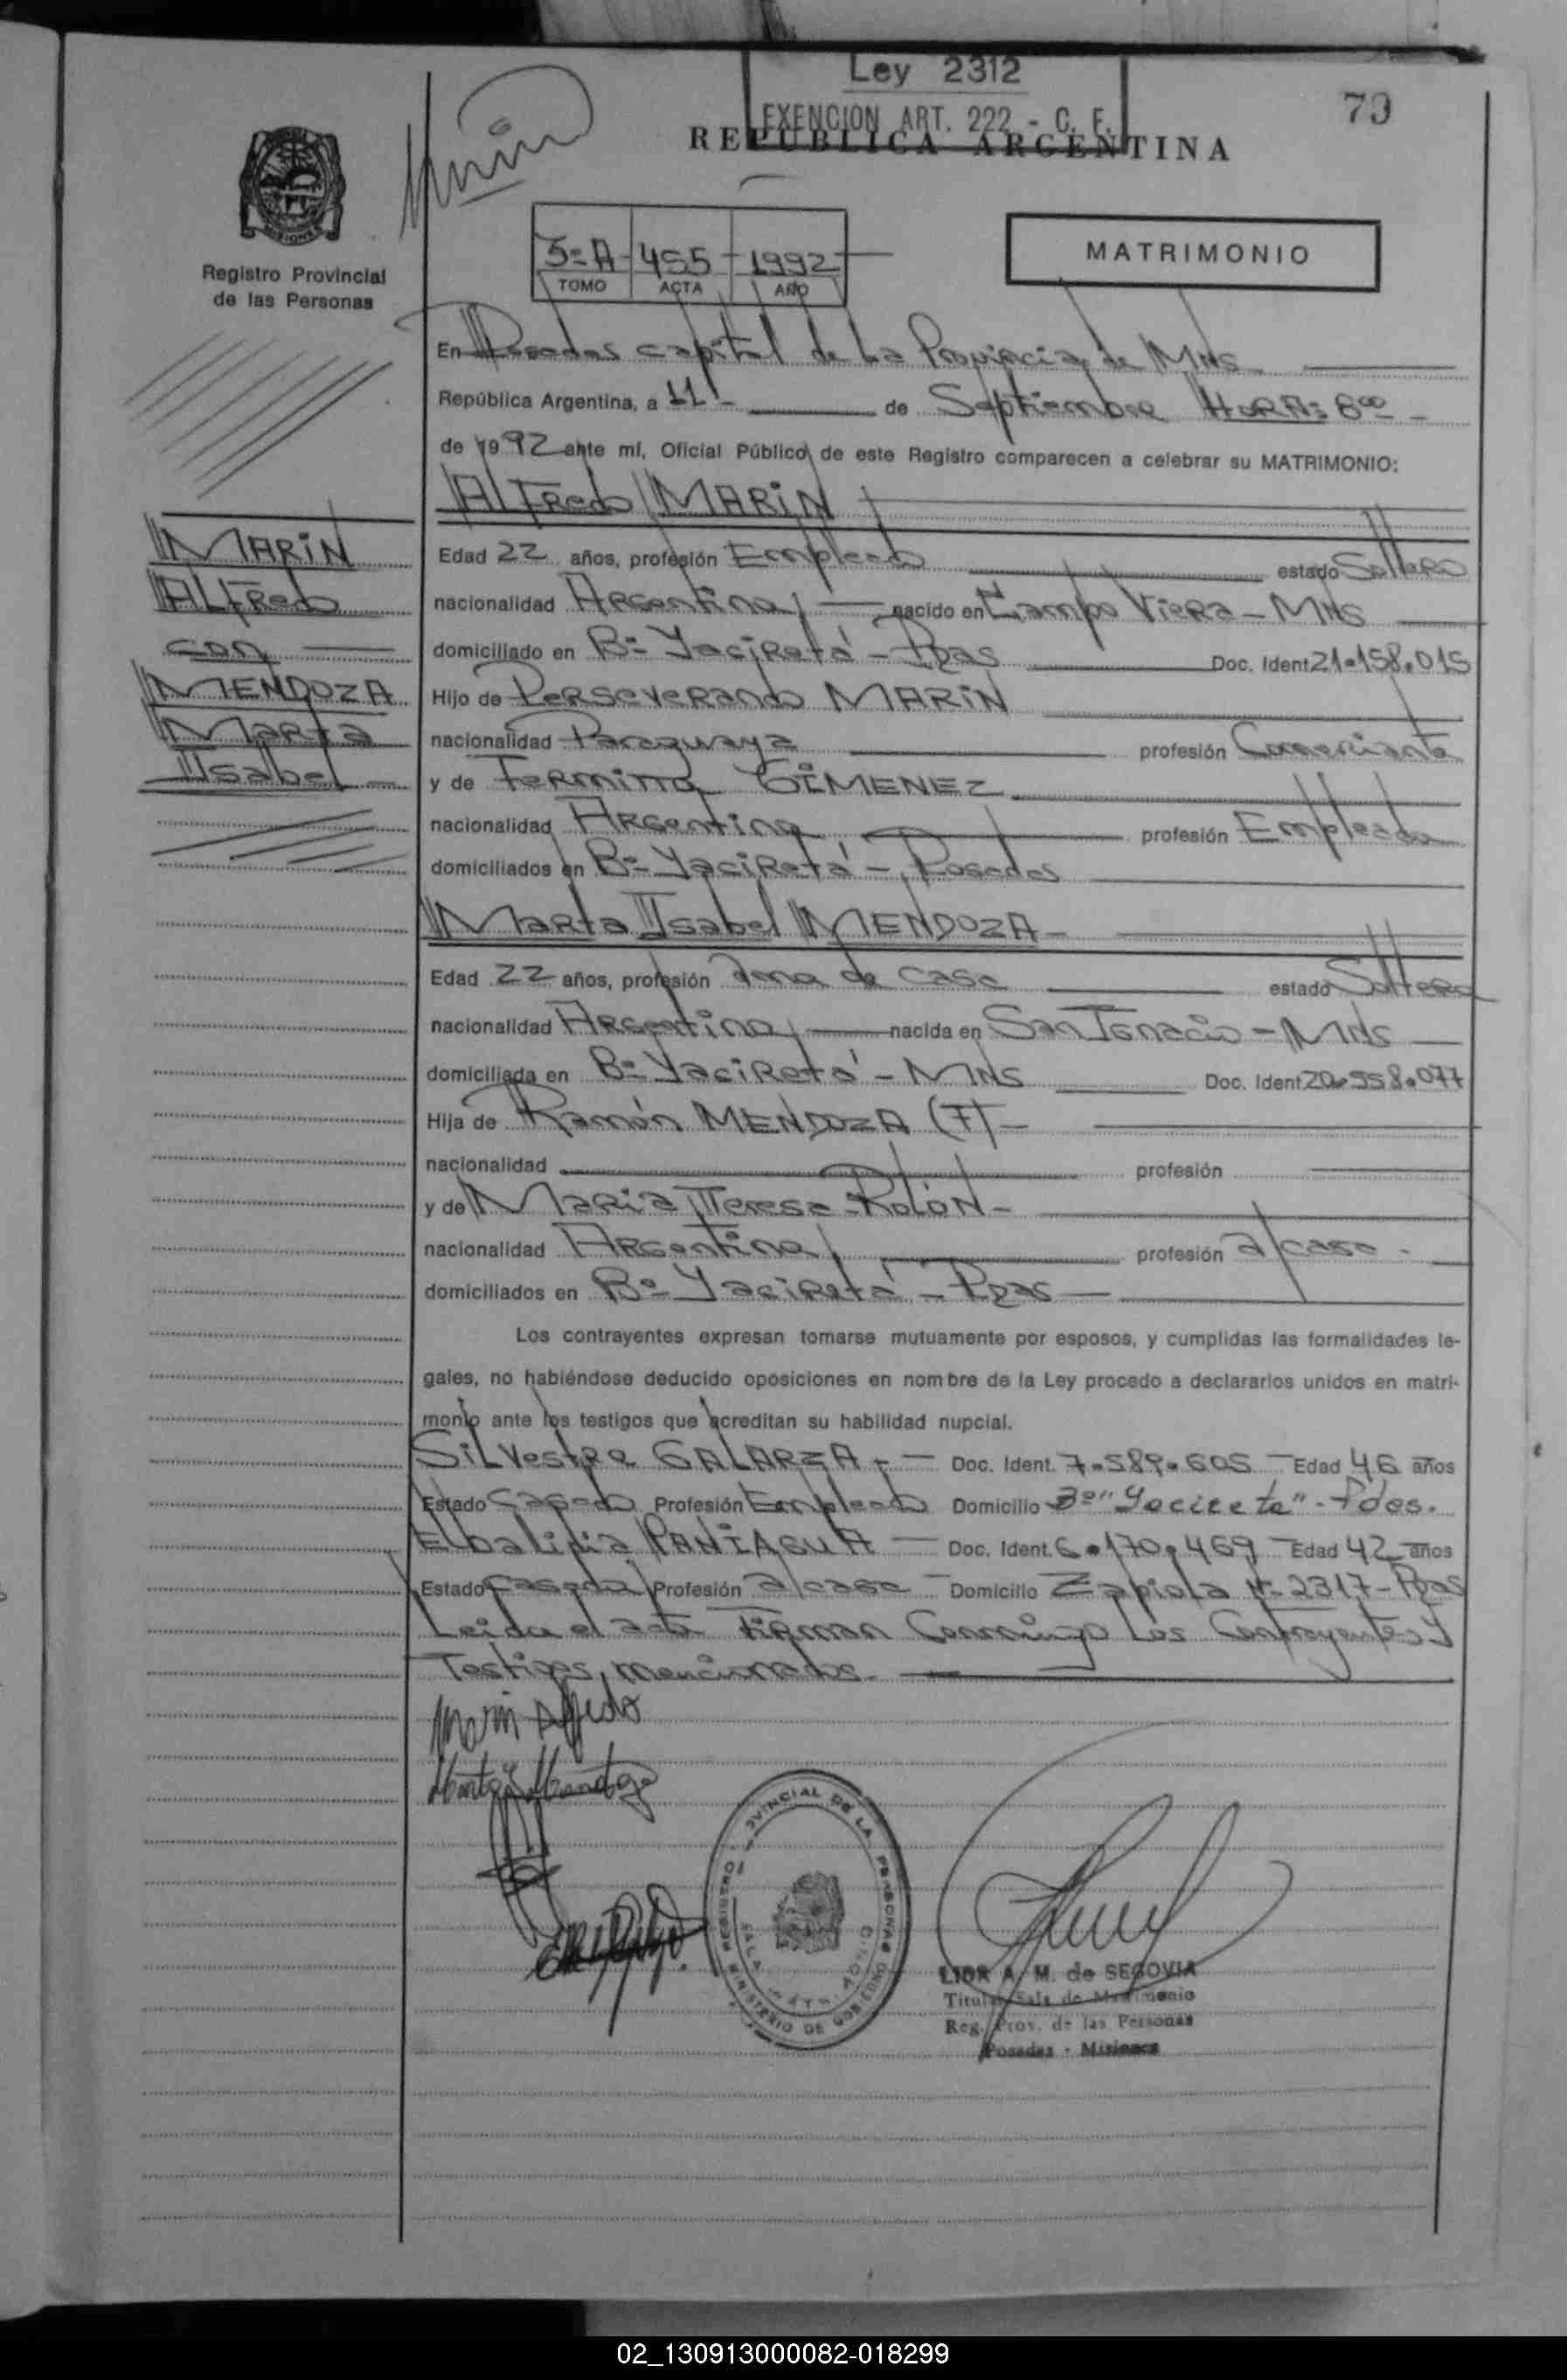 Ley 2312
EXENCION ART. 222 - C. F.
79
REPUBLICA ARGENTINA
MISIONES
Registro Provincial
de las Personas
5º A 455 1992
TOMO ACTA AÑO
MATRIMONIO
En Posadas capital de La Provincia de MNS
República Argentina, a 11 de Septiembre HORA: 8 00
de 1992 ante mí, Oficial Público de este Registro comparecen a celebrar su MATRIMONIO:
Alfredo MARIN
MARIN
Alfredo
con
MENDOZA
Marta
Isabel
Edad 22 años, profesión Empleado estado Soltero
nacionalidad Argentina nacido en Campo Viera - MNS
domiciliado en Bº Yaciretá - Pdas Doc. Ident 21.158.015
Hijo de Perseverando MARIN
nacionalidad Paraguaya profesión Comerciante
y de Fermina GIMENEZ
nacionalidad Argentina profesión Empleada
domiciliados en Bº Yaciretá - Posadas
Marta Isabel MENDOZA
Edad 22 años, profesión Ama de casa estado Soltera
nacionalidad Argentina nacida en San Ignacio - MNS
domiciliada en Bº Yaciretá - MNS Doc. Ident 20.558.077
Hija de Ramón MENDOZA (F)
nacionalidad profesión
y de Maria Teresa Rolón
nacionalidad Argentina profesión a/casa
domiciliados en Bº Yaciretá - Pdas
Los contrayentes expresan tomarse mutuamente por esposos, y cumplidas las formalidades le-
gales, no habiéndose deducido oposiciones en nombre de la Ley procedo a declararlos unidos en matri-
monio ante los testigos que acreditan su habilidad nupcial.
Silvestre GALARZA Doc. Ident. 7.589.605 Edad 46 años
Estado Casado Profesión Empleado Domicilio Bº "Yacireta" - Pdas.
Elbalidia PANIAGUA Doc. Ident. 6.170.469 Edad 42 años
Estado Casada Profesión a/casa Domicilio Zapiola Nº 2317 - Pdas
Leida el acta Firman Conmigo Los Contrayentes Y
Testigos mencionados
Marin Alfredo
Marta I. Mendoza
REGISTRO PROVINCIAL DE LA PERSONAS
MINISTERIO DE GOBIERNO
LIDA A. M. de SEGOVIA
Titular Sala de Matrimonio
Reg. Prov. de las Personas
Posadas - Misiones
02_130913000082-018299